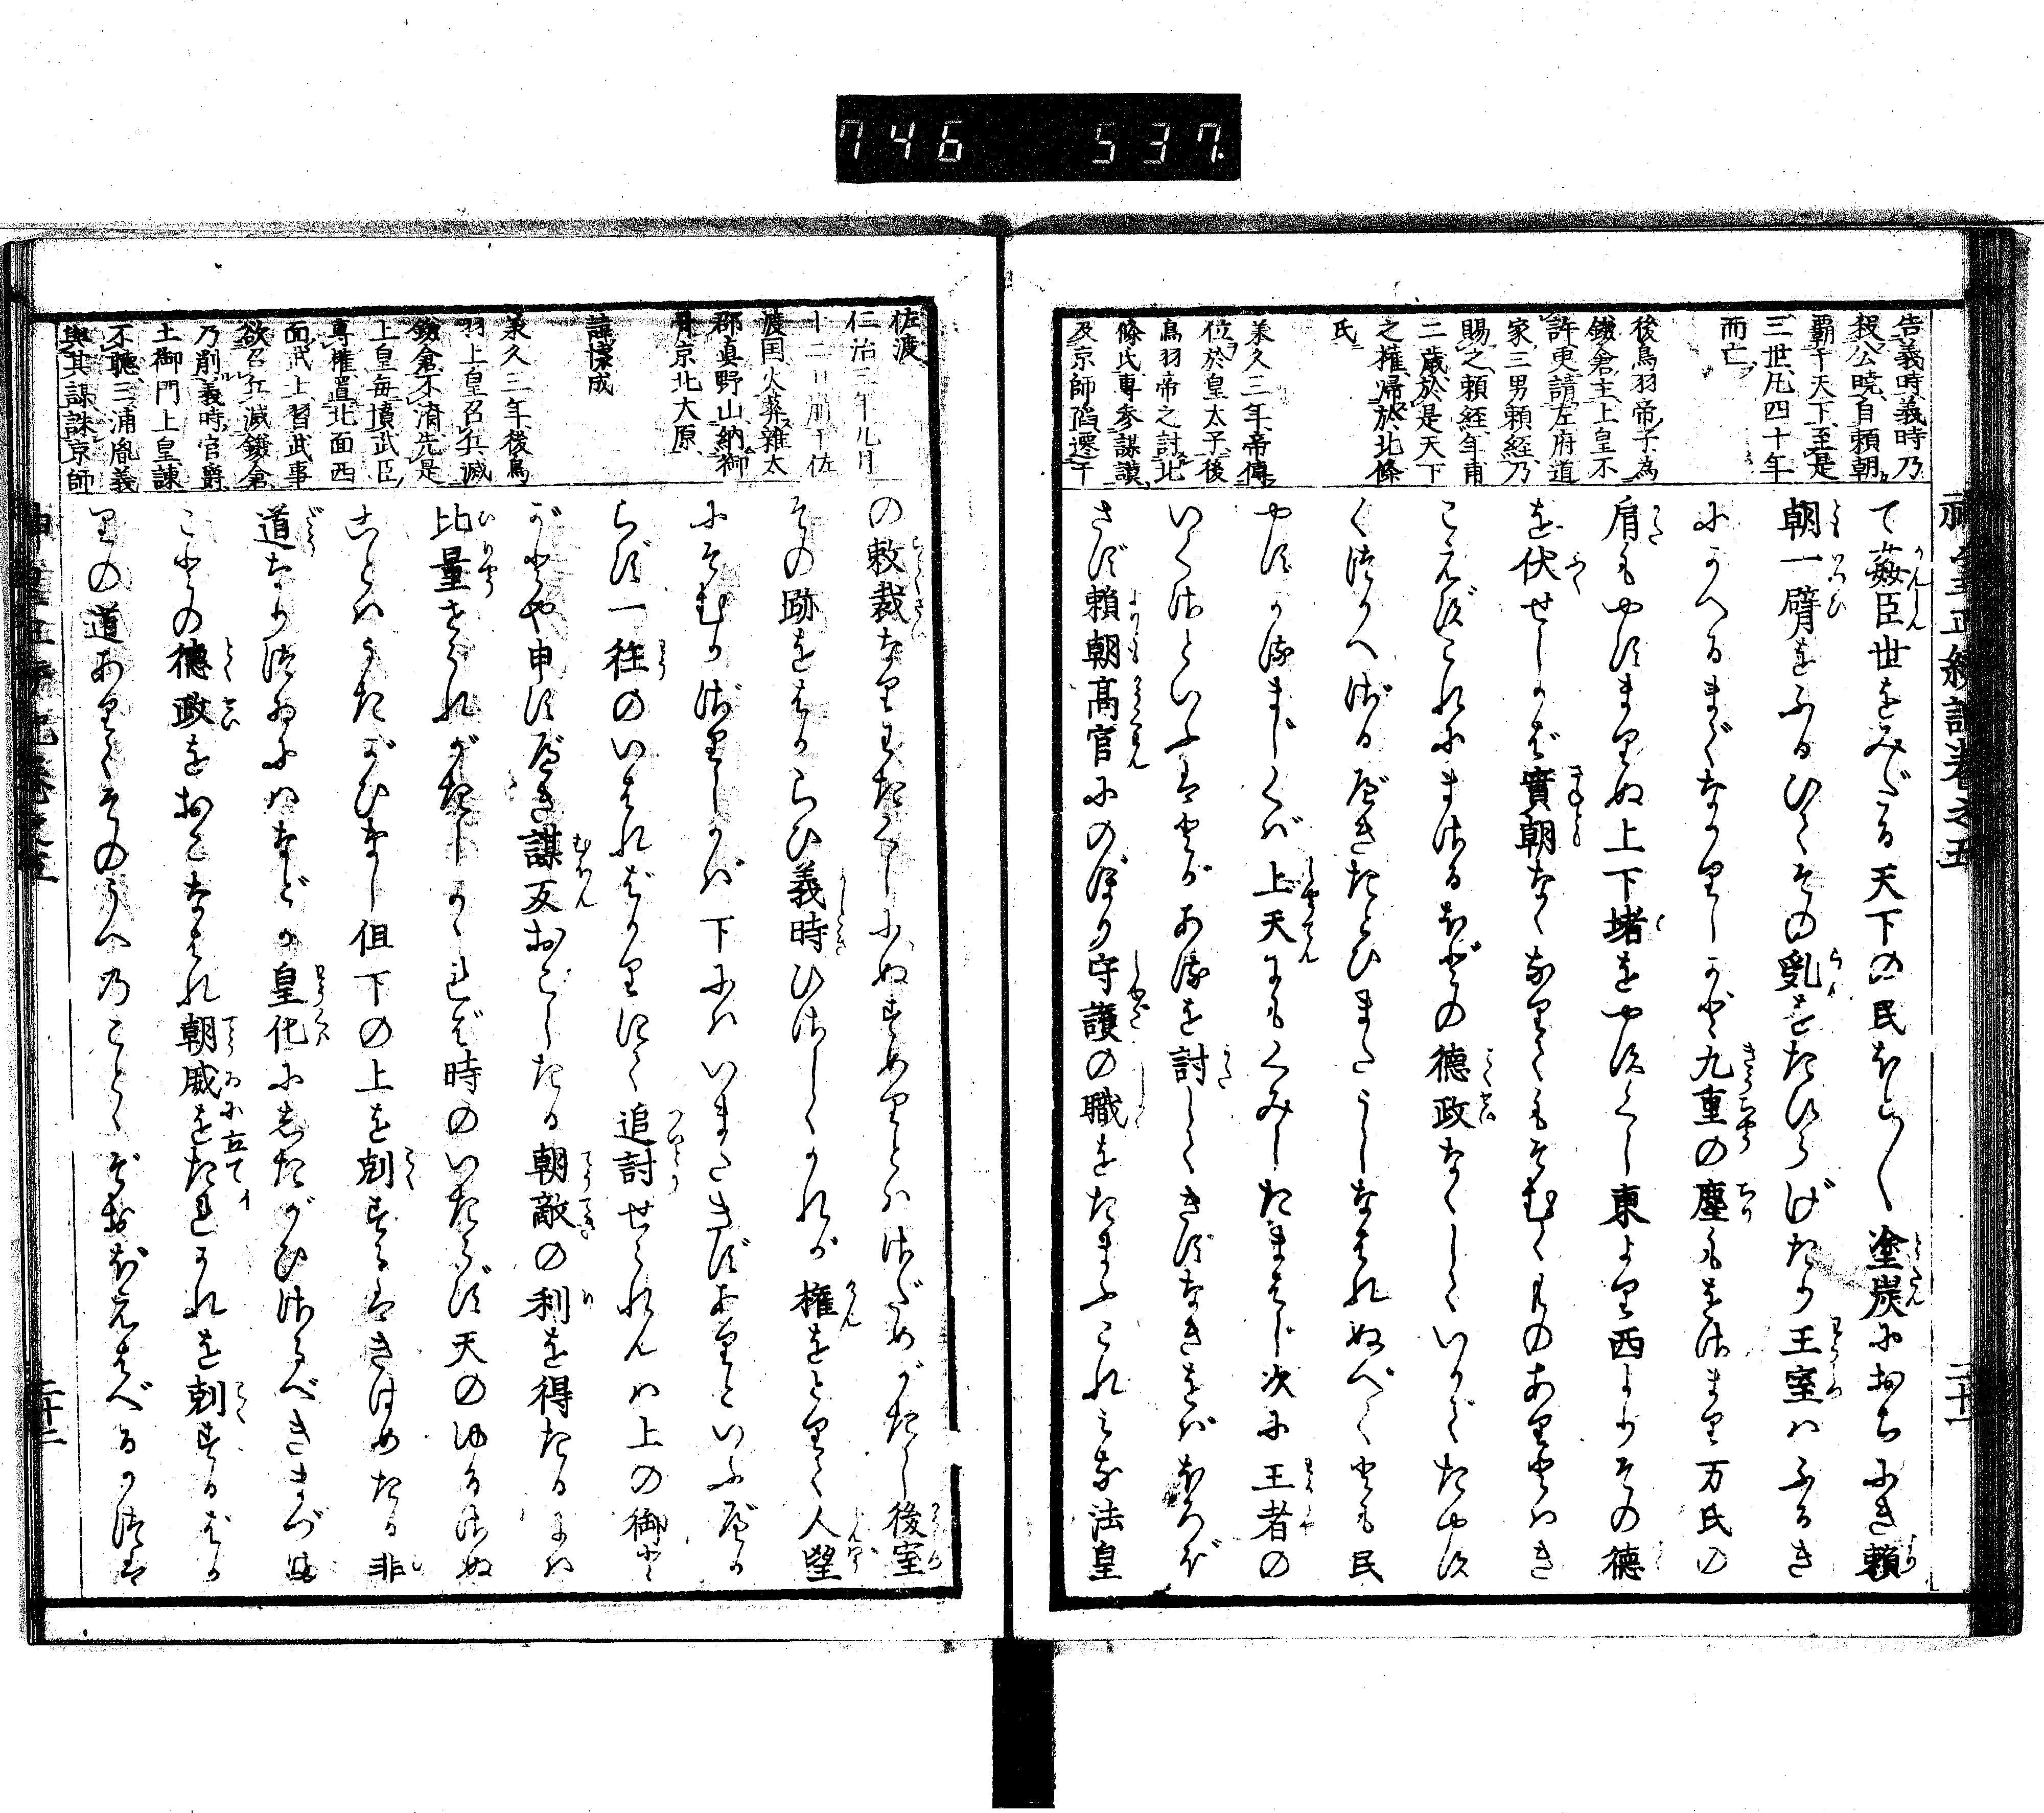 746 537.
神皇正統記巻之五
二十一
告義時義時乃
殺公曉自賴朝
覇于天下至是
三世凡四十年
而亡
後鳥羽帝子為
鎌倉主上皇不
許更請左府道
家三男賴経乃
賜之賴経年甫
二歳於是天下
之権帰於北條
氏
承久三年帝傳
位於皇太子後
鳥羽帝之討北
條氏専参謀議
及京師陷遷于
て姦臣世をみだる天下の民ほと〳〵塗炭におちにき頼
朝一臂をふるひてその乱をたひらげたり王室はふるき
にかへるまでなかりしかど九重の塵もをさまり万民の
肩もやすまりぬ上下堵をやすくし東より西よりその徳
を伏せしかば實朝なくなりてもそむく者のありとはき
こえずこれにまさるほどの徳政なくしていかでたやす
くつかへさるべきたとひまたうしなはれぬべくとも民
やすかるまじくば上天よもくみしたまはじ次に王者の
いくさといふはとがあるを討してきずなきをばほろぼ
さず賴朝高官にのぼり守護の職をたまふこれみな法皇
佐渡
仁治三年九月
十二日崩于佐
渡国火葬雑太
郡真野山納御
骨京北大原
諱懐成
承久三年後鳥
羽上皇召兵滅
鎌倉不濟先是
上皇毎憤武臣
専権置北面西
面武士習武事
欲召兵滅鎌倉
乃削義時官爵
土御門上皇諫
不聽三浦胤義
與其謀誅京師
の敕裁なりわたくしにぬすめりとはさだめがたし後室
その跡をはからひ義時ひさしくかれが権をとりて人望
にそむかざりしかば下にはいまだきずありといふべか
らず一往のいはればかりにて追討せられんは上の御と
がとや申すべき謀反おこしたる朝敵の利を得たるには
比量せられがたしかゝれば時のいたらず天のゆるさぬ
ことはうたがひなし但下の上を剋するはきはめたる非
道なりつひにはなどか皇化にしたがひさるべきまづ誠
ことの徳政をおこなはれ朝威をたてかれを剋するばか
に立てイ
りの道ありてそのうへのことゝぞおぼえはべるかつは
神皇正統記巻之五
二十二